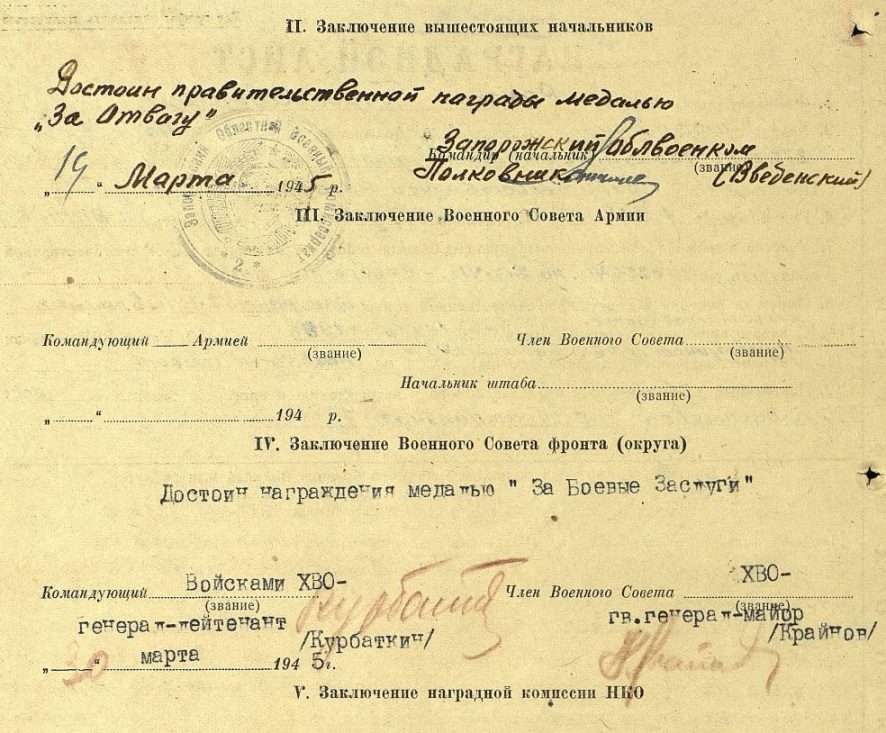 II. Заключение вышестоящих начальников
Достоин правительственной награды медалью
„За Отвагу"
Запорожский Облвоенком
Командир (начальник
(звание)
Полковник (Введенский)
„19" Марта 1945 р.
Запорізький Обласний Военный Комиссариат
* 2 *
III. Заключение Военного Совета Армии
Командующий Армией Член Военного Совета
(звание) (звание)
Начальник штаба
(звание)
„ " 194 р.
IV. Заключение Военного Совета фронта (округа)
Достоин награждения медалью " За Боевые Заслуги"
Командующий Войсками ХВО- Член Военного Совета ХВО-
(звание) (звание)
генерал-лейтенант /Курбаткин/ гв.генерал-майор /Крайнов/
„30" марта 1945г.
V. Заключение наградной комиссии НКО